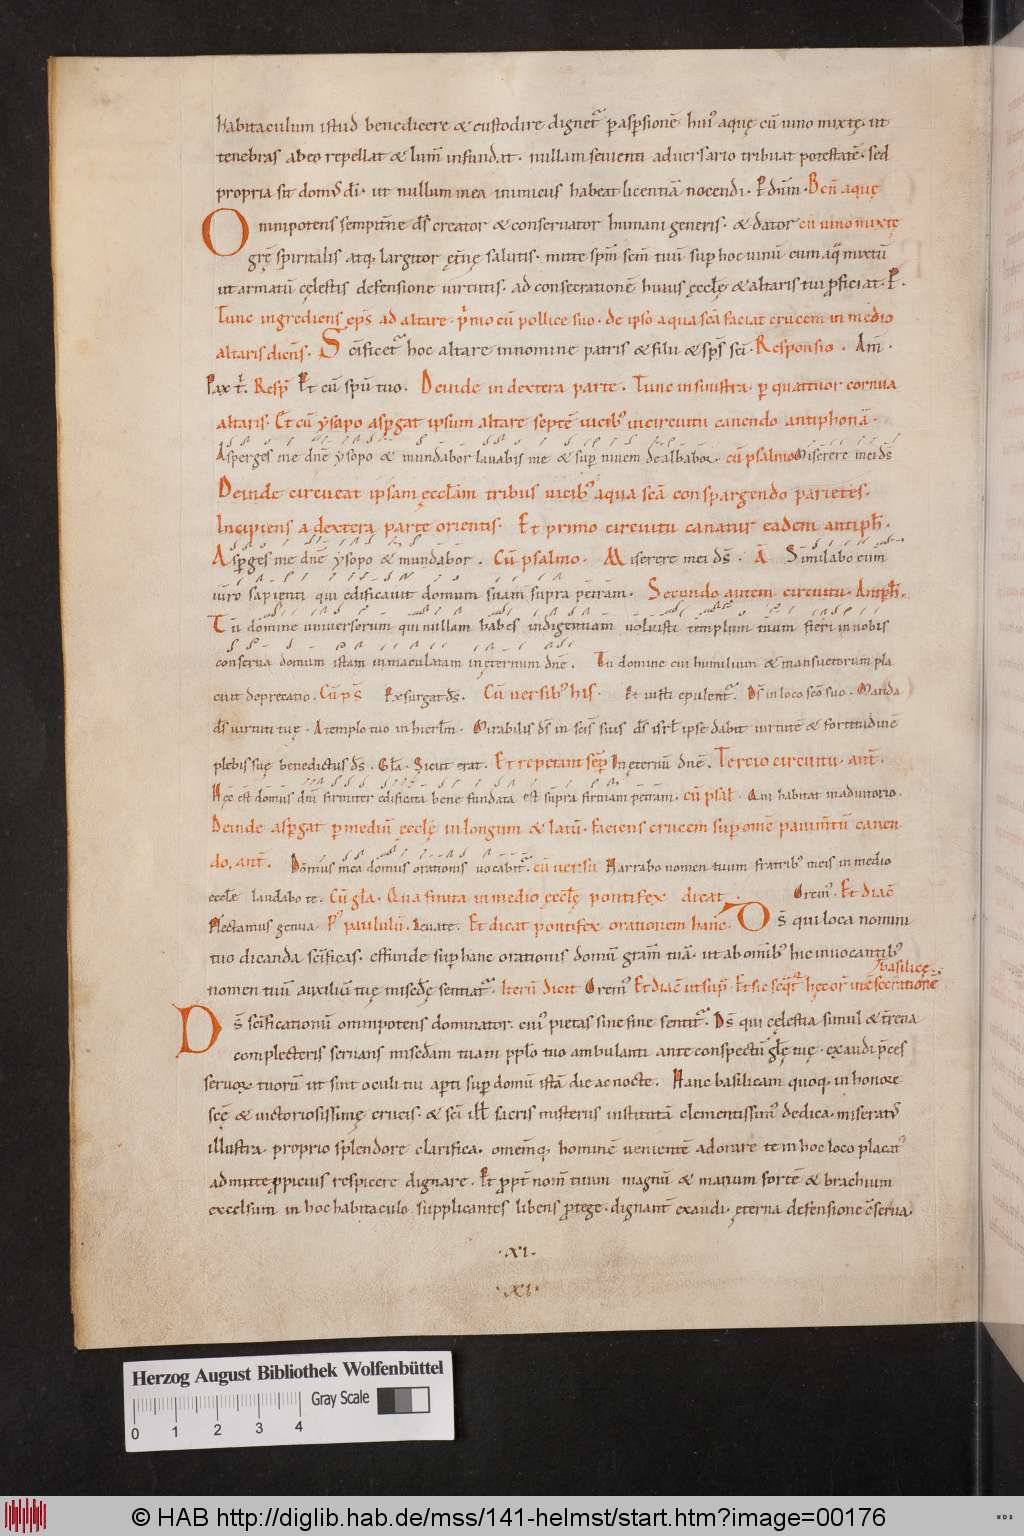 habitaculum istud benedicere & custodire dignet᷑ p aspsionē hui᷒ aquę cū uino mixtę. ut
tenebras ab eo repellat & lum̄ infundat. nullam seuienti aduersario tribuat potestatē. sed
propria sit domus dī. ut nullum mea inimicus habeat licentiā nocendi. P dn̄m. Ben̄ aquę
Omnipotens sempit̄ne ds̄ creator & conseruator humani generis. & dator cū uino mixtę
grę̄ spiritalis atq; largitor ęt̄nę salutis. mitte spm̄ scm̄ tuū sup hoc uinū cum aq̈ mixtū
ut armatū cęlestis defensione uirtutis. ad consecrationē huius ęccłę & altaris tui pficiat. P.
Tunc ingrediens ęps̄ ad altare. pͥmo cū pollice suo. de ipso aqua scā faciat crucem in medio
altaris dicens̄. Scīficet᷑ hoc altare in nomine patris & filii & sps̄ scī. Responsio. Am̄.
Pax t̄. Resp̄ Et cū spū tuo. Deinde in dextera parte. Tunc in sinistra. p quattuor cornua
altaris. Et cū ysapo aspgat ipsum altare septē uicib᷒ in circuitu canendo antiphonā.
Asperges me dn̄e ysopo & mundabor lauabis me & sup niuem dealbabor. cū psalmo Miserere mei ds̄
Deinde circueat ipsam ęccłam tribus uicib᷒ aqua scā conspargendo parietes.
Incipiens a dextera parte orientis. Et primo circuitu canatur eadem antiph̄.
Asperges me dn̄e ysopo & mundabor. Cū psalmo. Miserere mei ds̄. A Similabo eum
uiro sapienti qui edificauit domum suam supra petram. Secundo autem circuitu. Antiph̄.
Tu domine uniuersorum qui nullam habes indigentiam uoluisti templum tuum fieri in nobis
conserua domum istam inmaculatam in ęternum dn̄e. Tu domine cui humilium & mansuetorum pla
cuit deprecatio. Cū ps̄ Exsurgat ds̄. Cū uersib᷒ his. Et iusti epulent᷑. Ds̄ in loco scō suo. Manda
ds̄ uirtuti tuę. A templo tuo in hierlm̄. Mirabilis ds̄ in scīs suis ds̄ isrł ipse dabit uirtutē & fortitudinē
plebis suę benedictus ds̄. Gła. Sicut erat. Et repetant sēp In ęternū dn̄e. Tercio circuitu. ant̄.
Hęc est domus dn̄i firmiter edificata bene fundata est supra firmam petram. cū psał. Qui habitat in adiutorio.
Deinde aspgat p mediū ęccłę in longum & latū. faciens crucem sup omē pauimtū canen
do. ant̄. Domus mea domus orationis uocabit᷑. cū uersu Narrabo nomen tuum fratrib᷒ meis in medio
eccłę laudabo te. Cū gła. Qua finita in medio ęccłę pontifex dicat. Orem᷒. Et diac̄
Flectamus genua. P᷒ paululū. Leuate. Et dicat pontifex orationem hanc. Ds̄ qui loca nomini
tuo dicanda scīficas. effunde sup hanc orationis domū gram̄ tuā. ut ab omīb᷒ hic inuocantib᷒
nomen tuū auxiliū tuę misedę̄ sentiat᷑. Iterū dicit Orem᷒ Et diac̄ ut sup. Et sic seqt᷑ hęc or̄ in secrationē
basilicę.
Ds̄ scīficationū omnipotens dominator. cui᷒ pietas sine fine sentit᷑. Ds̄ qui cęlestia simul & t̄rena
complecteris seruans misedam tuam pplo tuo ambulanti ante conspectū głę tuę. exaudi p̄ces
seruoꝝ tuorū ut sint oculi tui apti sup domū istā die ac nocte. Hanc basilicam quoq; in honore
scę̄ & uictoriosissimę crucis. & scī iłł sacris misteriis institutā clementissim᷒ dedica. miserat᷒
illustra. proprio splendore clarifica. omemq; hominē uenientē adorare te in hoc loco placat᷒
admitte ppicius respicere dignare. Et ppt̄ nom̄ tuum magnū & manum fortē & brachium
excelsum in hoc habitaculo supplicantes libens p̄tege. dignant̄ exaudi. ęterna defensione c̄serua.
.xi.
.xi.
Herzog August Bibliothek Wolfenbüttel
Gray Scale
0 1 2 3 4
© HAB http://diglib.hab.de/mss/141-helmst/start.htm?image=00176